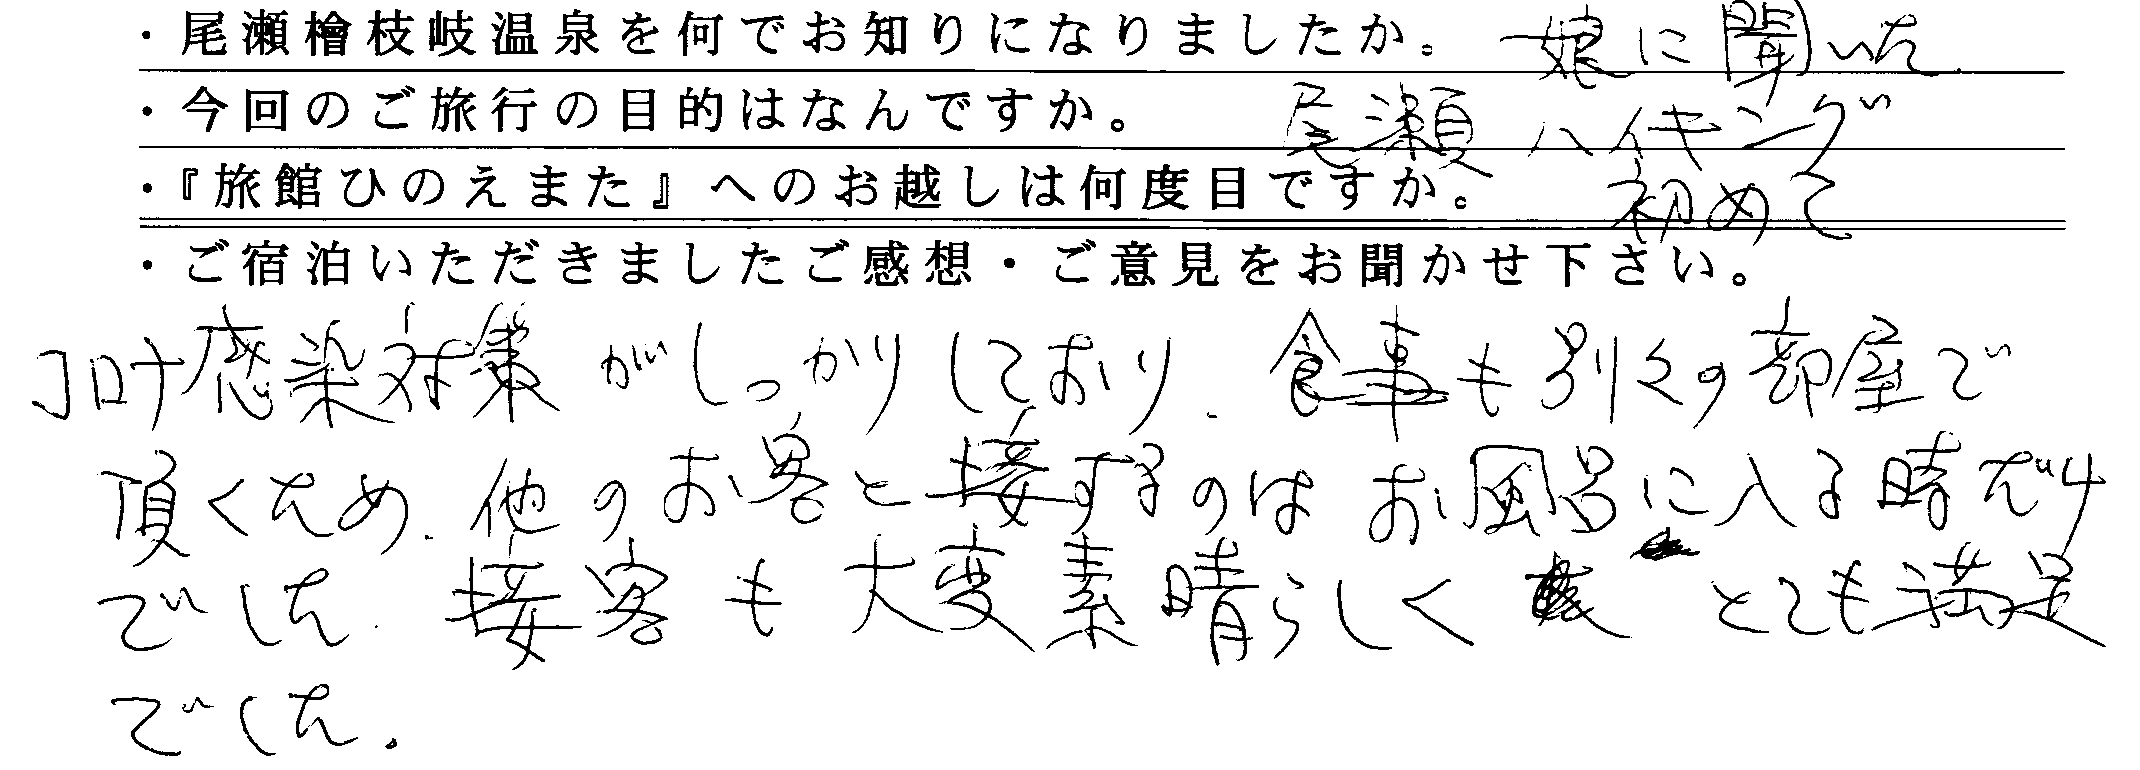 ・尾瀬檜枝岐温泉を何でお知りになりましたか。 娘に聞いた
・今回のご旅行の目的はなんですか。 尾瀬ハイキング
・『旅館ひのえまた』へのお越しは何度目ですか。 初めて
・ご宿泊いただきましたご感想・ご意見をお聞かせ下さい。
コロナ感染対策がしっかりしており、食事も別々の部屋で
頂くため、他のお客と接するのはお風呂に入る時だけ
でした。接客も大変素晴らしく とても満足
でした。